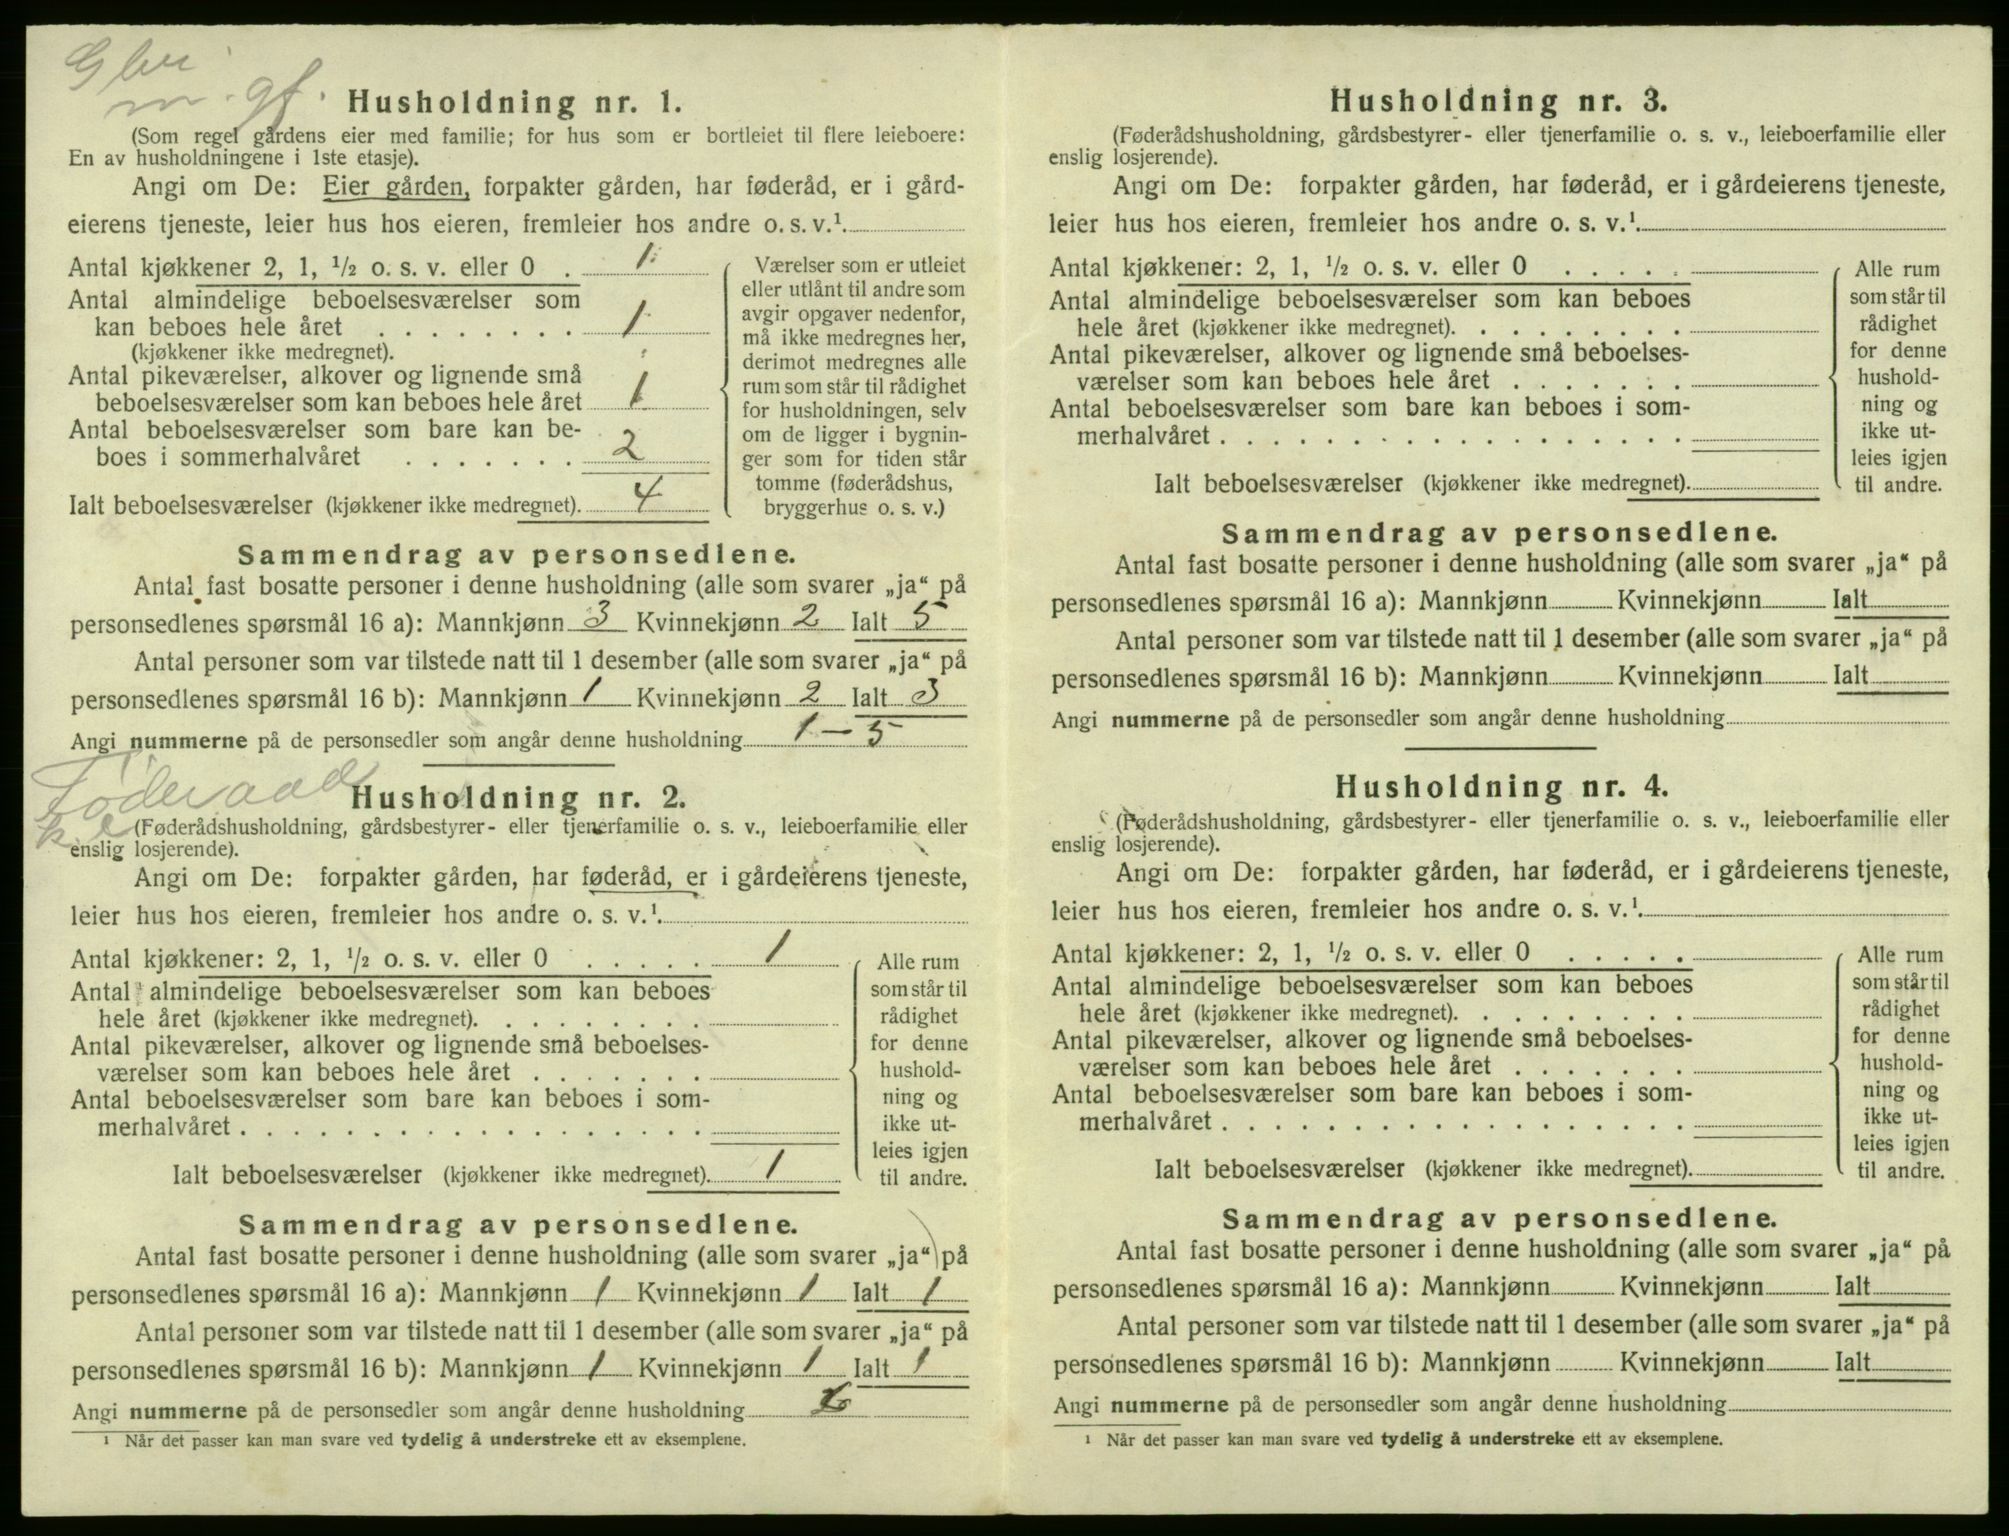 m. gf.
Husholdning nr. 1.
(Som regel gårdens eier med familie; for hus som er bortleiet til flere leieboere:
En av husholdningene i 1ste etasje).
Angi om De: Eier gården, forpakter gården, har føderåd, er i gård-
eierens tjeneste, leier hus hos eieren, fremleier hos andre o. s. v.¹
Antal kjøkkener 2, 1, ½ o. s. v. eller 0 . 1
Antal almindelige beboelsesværelser som
kan beboes hele året . . . . . . . . 1
(kjøkkener ikke medregnet).
Antal pikeværelser, alkover og lignende små
beboelsesværelser som kan beboes hele året 1
Antal beboelsesværelser som bare kan be-
boes i sommerhalvåret . . . . . . . 2
Ialt beboelsesværelser (kjøkkener ikke medregnet). 4
Værelser som er utleiet
eller utlånt til andre som
avgir opgaver nedenfor,
må ikke medregnes her,
derimot medregnes alle
rum som står til rådighet
for husholdningen, selv
om de ligger i bygnin-
ger som for tiden står
tomme (føderådshus,
bryggerhus o. s. v.)
Sammendrag av personsedlene.
Antal fast bosatte personer i denne husholdning (alle som svarer „ja“ på
personsedlenes spørsmål 16 a): Mannkjønn 3 Kvinnekjønn 2 Ialt 5
Antal personer som var tilstede natt til 1 desember (alle som svarer „ja“ på
personsedlenes spørsmål 16 b): Mannkjønn 1 Kvinnekjønn 2 Ialt 3
Angi nummerne på de personsedler som angår denne husholdning 1 – 5
Føderaad
Husholdning nr. 2.
(Føderådshusholdning, gårdsbestyrer- eller tjenerfamilie o. s. v., leieboerfamilie eller
enslig losjerende).
Angi om De: forpakter gården, har føderåd, er i gårdeierens tjeneste,
leier hus hos eieren, fremleier hos andre o. s. v.¹
Antal kjøkkener: 2, 1, ½ o. s. v. eller 0 . . . . . 1
Antal almindelige beboelsesværelser som kan beboes
hele året (kjøkkener ikke medregnet). . . . . . . . .
Antal pikeværelser, alkover og lignende små beboelses-
værelser som kan beboes hele året . . . . . . .
Antal beboelsesværelser som bare kan beboes i som-
merhalvåret . . . . . . . . . . . . . . . . . .
Ialt beboelsesværelser (kjøkkener ikke medregnet). 1
Alle rum
som står til
rådighet
for denne
hushold-
ning og
ikke ut-
leies igjen
til andre.
Sammendrag av personsedlene.
Antal fast bosatte personer i denne husholdning (alle som svarer „ja“ på
personsedlenes spørsmål 16 a): Mannkjønn 1 Kvinnekjønn 1 Ialt 1
Antal personer som var tilstede natt til 1 desember (alle som svarer „ja“ på
personsedlenes spørsmål 16 b): Mannkjønn 1 Kvinnekjønn 1 Ialt 1
Angi nummerne på de personsedler som angår denne husholdning
¹ Når det passer kan man svare ved tydelig å understreke ett av eksemplene.
Husholdning nr. 3.
(Føderådshusholdning, gårdsbestyrer- eller tjenerfamilie o. s. v., leieboerfamilie eller
enslig losjerende).
Angi om De: forpakter gården, har føderåd, er i gårdeierens tjeneste,
leier hus hos eieren, fremleier hos andre o. s. v.¹
Antal kjøkkener: 2, 1, ½ o. s. v. eller 0 . . . . .
Antal almindelige beboelsesværelser som kan beboes
hele året (kjøkkener ikke medregnet). . . . . . . . .
Antal pikeværelser, alkover og lignende små beboelses-
værelser som kan beboes hele året . . . . . . .
Antal beboelsesværelser som bare kan beboes i som-
merhalvåret . . . . . . . . . . . . . . . . . .
Ialt beboelsesværelser (kjøkkener ikke medregnet).
Alle rum
som står til
rådighet
for denne
hushold-
ning og
ikke ut-
leies igjen
til andre.
Sammendrag av personsedlene.
Antal fast bosatte personer i denne husholdning (alle som svarer „ja“ på
personsedlenes spørsmål 16 a): Mannkjønn Kvinnekjønn Ialt
Antal personer som var tilstede natt til 1 desember (alle som svarer „ja“ på
personsedlenes spørsmål 16 b): Mannkjønn Kvinnekjønn Ialt
Angi nummerne på de personsedler som angår denne husholdning
Husholdning nr. 4.
(Føderådshusholdning, gårdsbestyrer- eller tjenerfamilie o. s. v., leieboerfamilie eller
enslig losjerende).
Angi om De: forpakter gården, har føderåd, er i gårdeierens tjeneste,
leier hus hos eieren, fremleier hos andre o. s. v.¹
Antal kjøkkener: 2, 1, ½ o. s. v. eller 0 . . . . .
Antal almindelige beboelsesværelser som kan beboes
hele året (kjøkkener ikke medregnet). . . . . . . . .
Antal pikeværelser, alkover og lignende små beboelses-
værelser som kan beboes hele året . . . . . . .
Antal beboelsesværelser som bare kan beboes i som-
merhalvåret . . . . . . . . . . . . . . . . . .
Ialt beboelsesværelser (kjøkkener ikke medregnet).
Alle rum
som står til
rådighet
for denne
hushold-
ning og
ikke ut-
leies igjen
til andre.
Sammendrag av personsedlene.
Antal fast bosatte personer i denne husholdning (alle som svarer „ja“ på
personsedlenes spørsmål 16 a): Mannkjønn Kvinnekjønn Ialt
Antal personer som var tilstede natt til 1 desember (alle som svarer „ja“ på
personsedlenes spørsmål 16 b): Mannkjønn Kvinnekjønn Ialt
Angi nummerne på de personsedler som angår denne husholdning
¹ Når det passer kan man svare ved tydelig å understreke ett av eksemplene.